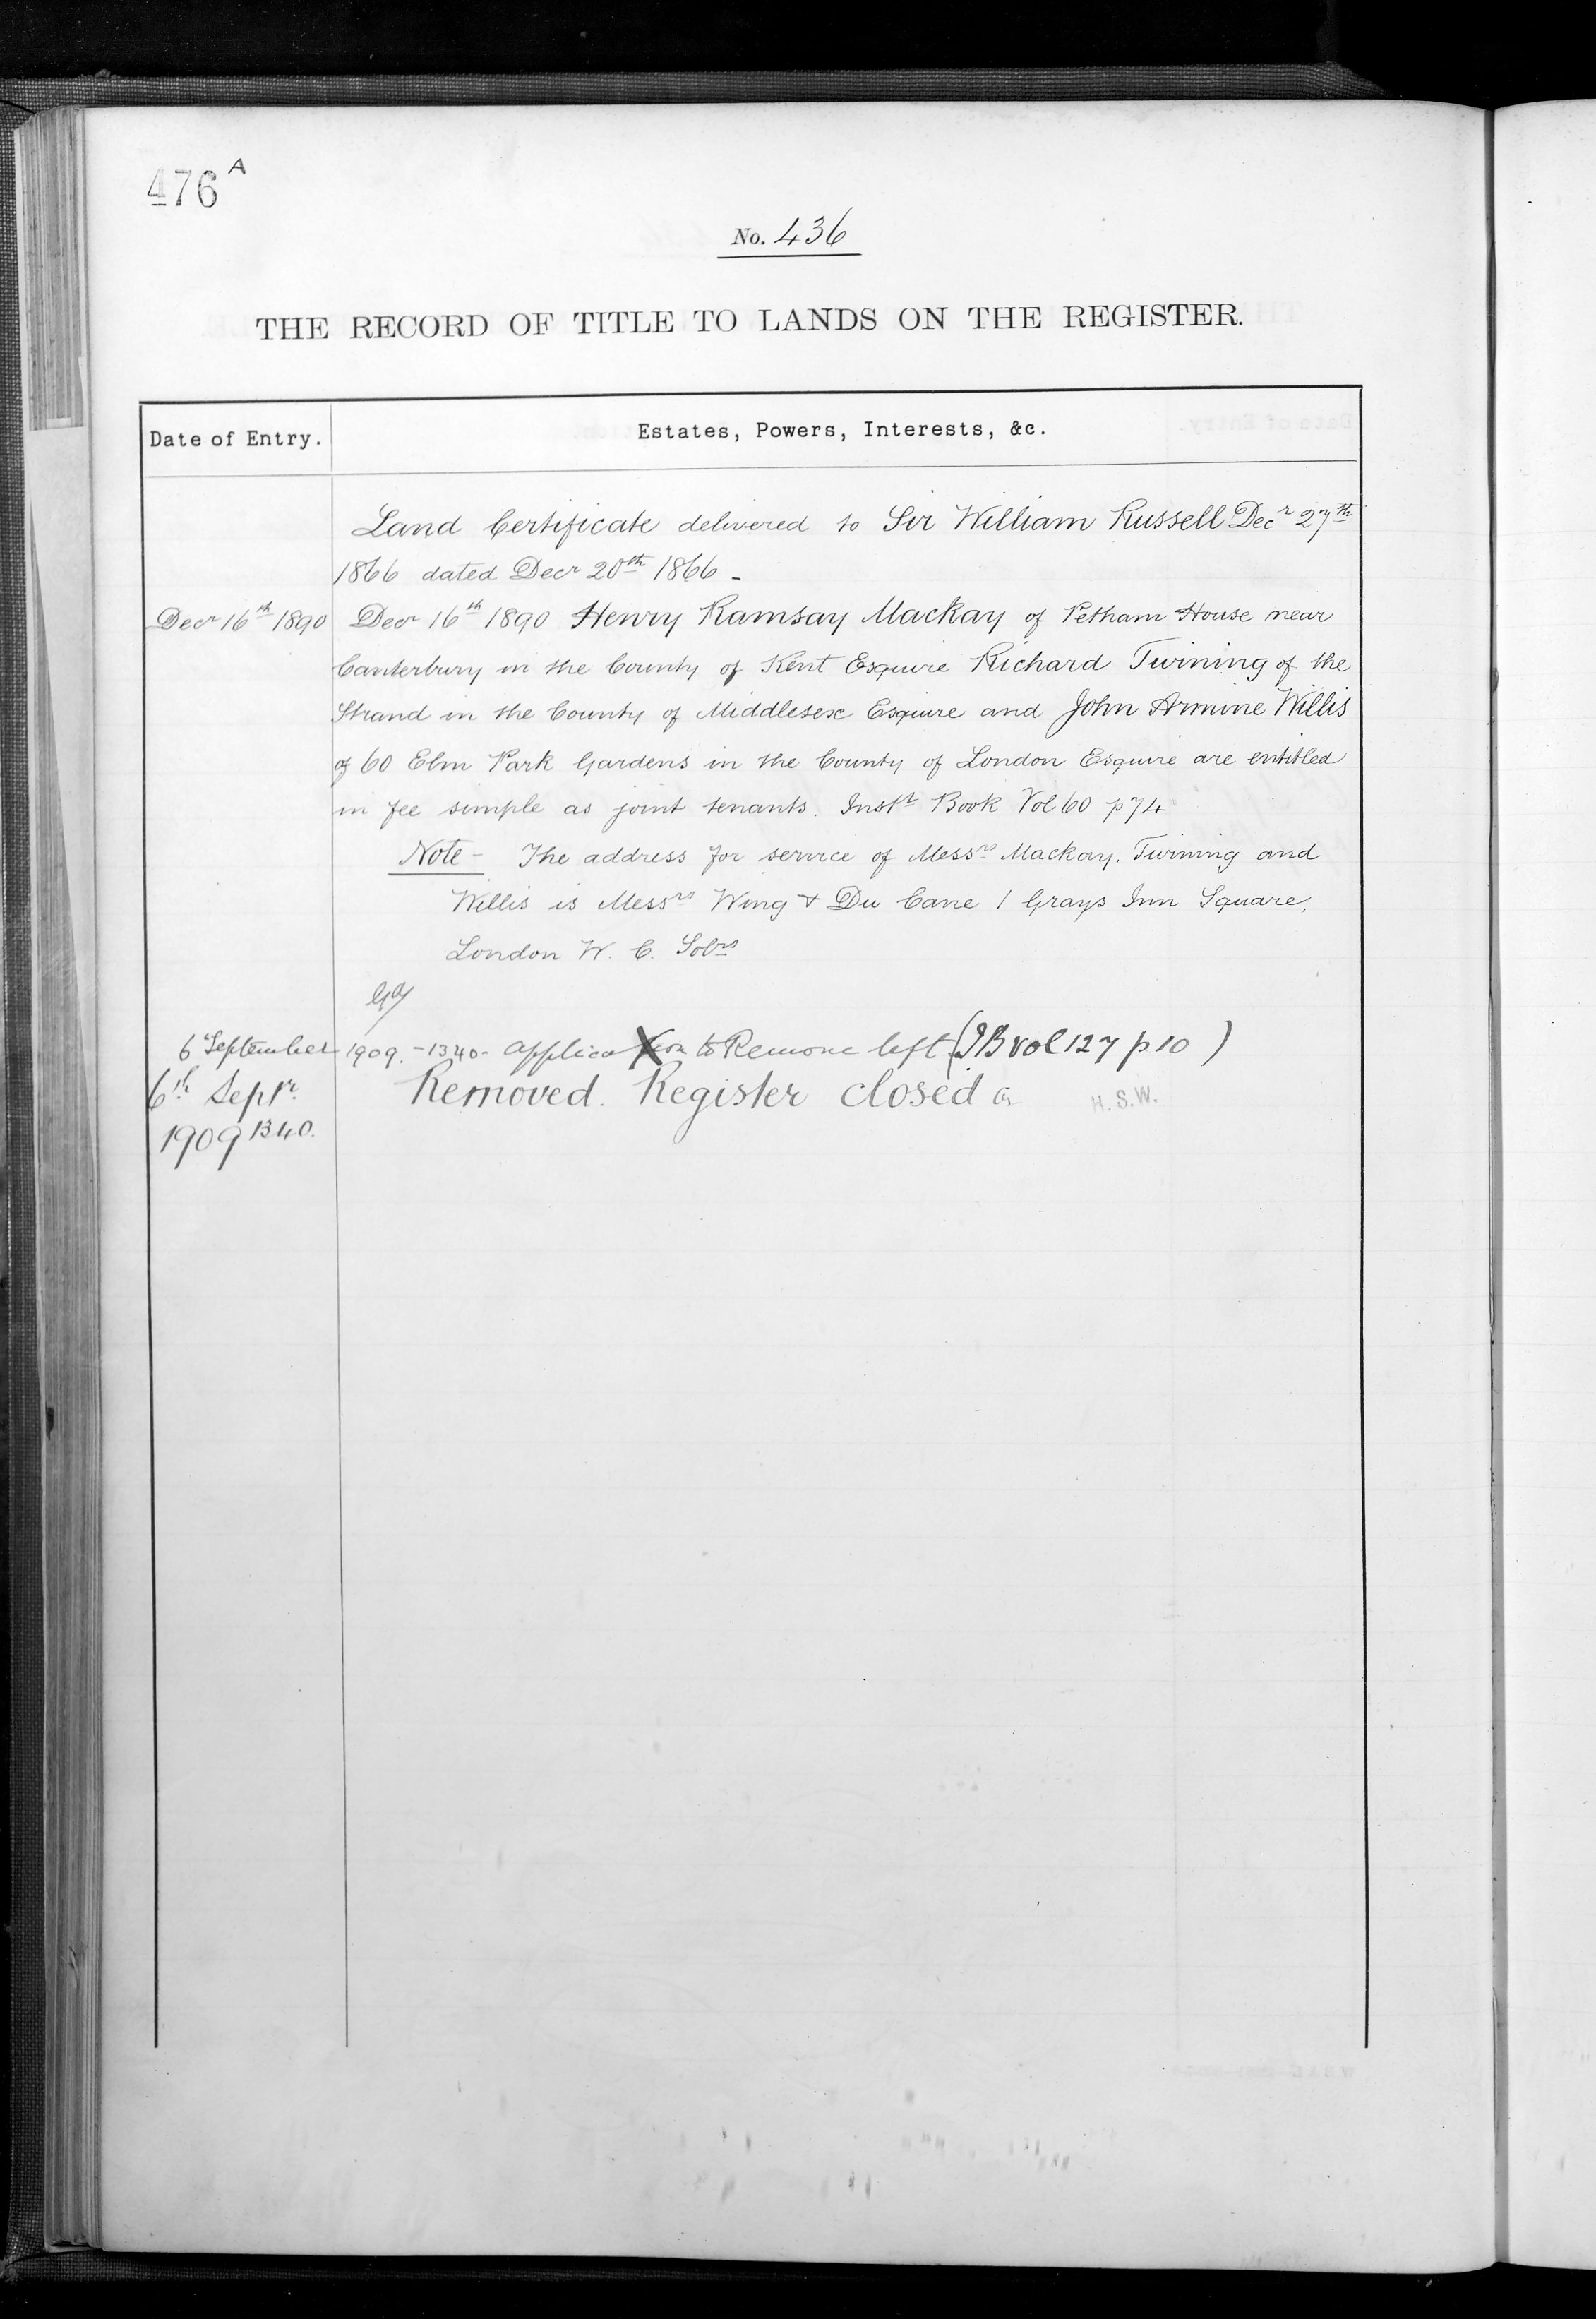 476 A
No. 436
THE RECORD OF TITLE TO LANDS ON THE REGISTER.
Date of Entry. Estates, Powers, Interests, &c.
Land Certificate delivered to Sir William Russell Decr 27th
1866 dated Decr 20th 1866 -
Decr 16th 1890 Decr 16th 1890 Henry Ramsay Mackay of Petham House near
Canterbury in the County of Kent Esquire Richard Twining of the
Strand in the County of Middlesex Esquire and John Armine Willis
of 60 Elm Park Gardens in the County of London Esquire are entitled
in fee simple as joint tenants. Instt Book Vol 60 p 74
Note - The address for service of Messrs Mackay, Twining and
Willis is Messrs Wing & Du Cane 1 Grays Inn Square,
London W. C. Solrs
6 September 1909. -1340- Application to Remove left (IB vol 127 p 10)
6th Septr. Removed. Register closed H.S.W.
1909 1340.